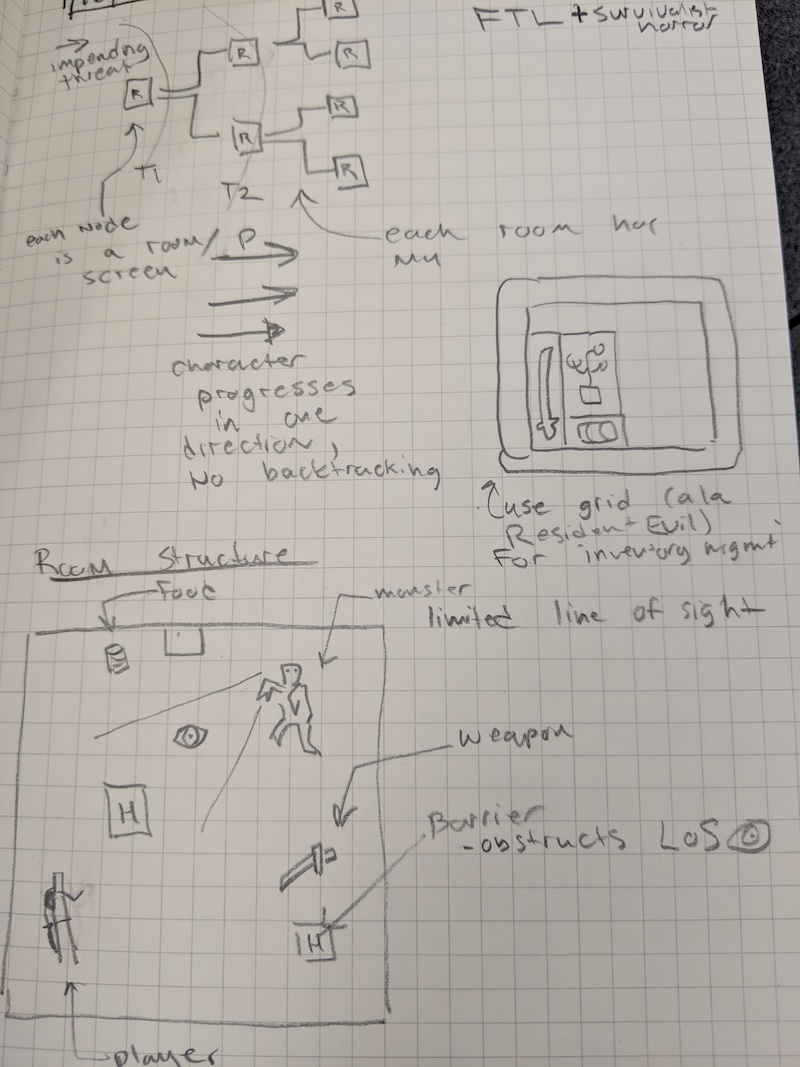 FTL + survivalist
horror
impending
threat
R
R
R
R
R
R
R
T1
T2
each Node
is a room/
screen
P
each room has
Mu
character
progresses
in one
direction,
No backtracking
(use grid (ala
Resident Evil)
For inventory mgmt
Room Structure
Food
monster
limited line of sight
weapon
H
Barrier
-obstructs LoS
H
player